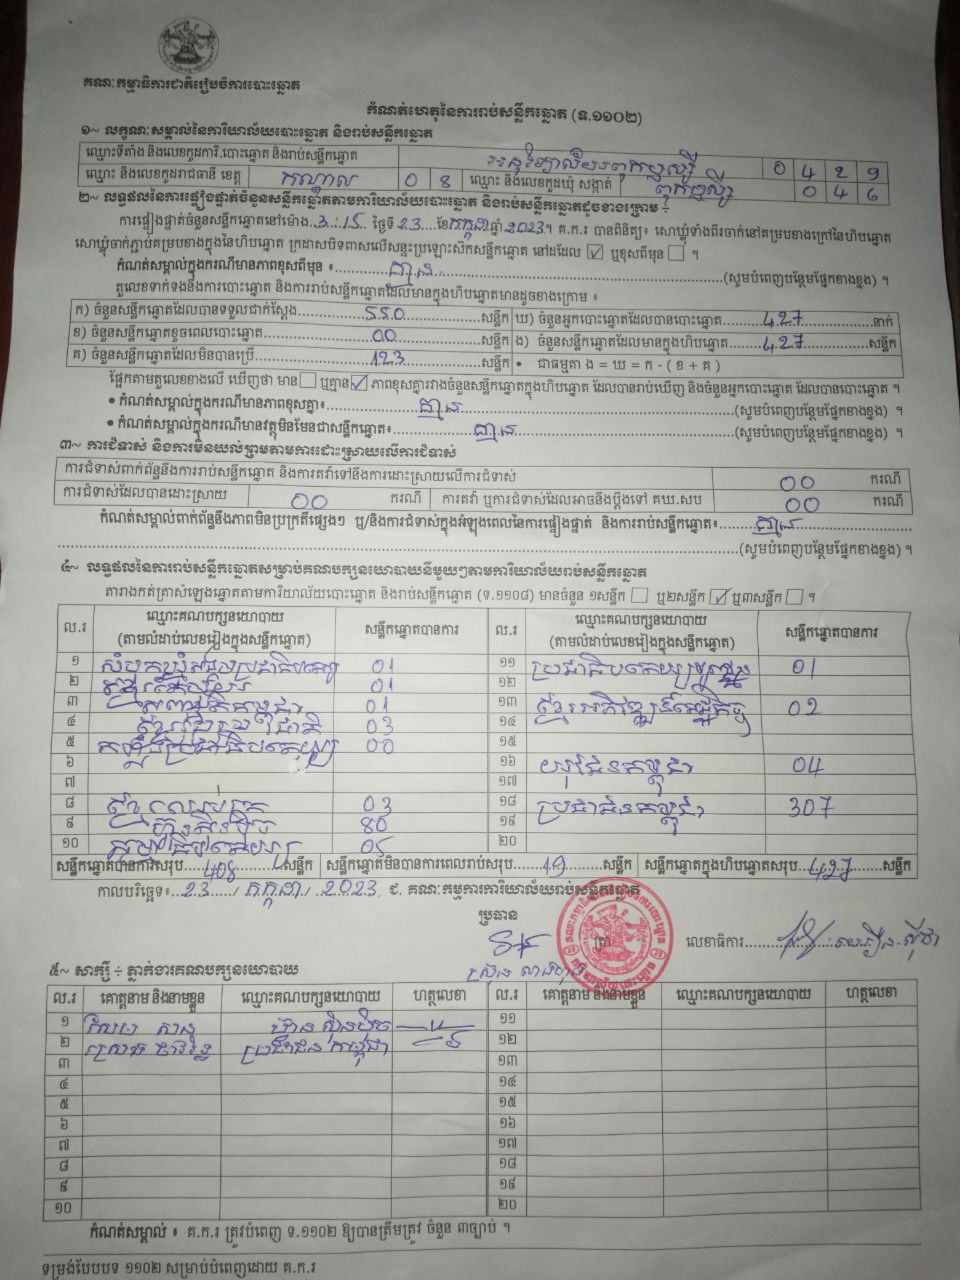 គណៈកម្មាធិការជាតិរៀបចំការបោះឆ្នោត
កំណត់ហេតុនៃការរាប់សន្លឹកឆ្នោត (ទ.១១០២)
១~ លក្ខណៈសម្គាល់នៃការិយាល័យបោះឆ្នោត និងរាប់សន្លឹកឆ្នោត
ឈ្មោះទីតាំង និងលេខកូដការិ.បោះឆ្នោត និងរាប់សន្លឹកឆ្នោត 0 4 2 9
ឈ្មោះ និងលេខកូដរាជធានី ខេត្ត កណ្តាល 0 8 ឈ្មោះ និងលេខកូដឃុំ សង្កាត់ 0 4 6
២~ លទ្ធផលនៃការផ្ទៀងផ្ទាត់ចំនួនសន្លឹកឆ្នោតតាមការិយាល័យបោះឆ្នោត និងរាប់សន្លឹកឆ្នោតដូចខាងក្រោម ÷
ការផ្ទៀងផ្ទាត់ចំនួនសន្លឹកឆ្នោតនៅម៉ោង 3:15 ថ្ងៃទី 23 ខែ កក្កដា ឆ្នាំ 2023។ គ.ក.រ បានពិនិត្យ៖ សោឃ្លុំទាំងពីរចាក់នៅគម្របខាងក្រៅនៃហិបឆ្នោត
សោឃ្លុំចាក់ភ្ជាប់គម្របខាងក្នុងនៃហិបឆ្នោត ក្រដាសបិទពាសលើសន្ទះប្រឡោះស៊កសន្លឹកឆ្នោត នៅដដែល ✓ ឬខុសពីមុន ។
កំណត់សម្គាល់ក្នុងករណីមានភាពខុសពីមុន ៖ គ្មាន (សូមបំពេញបន្ថែមផ្នែកខាងខ្នង) ។
តួលេខទាក់ទងនឹងការបោះឆ្នោត និងការរាប់សន្លឹកឆ្នោតដែលមានក្នុងហិបឆ្នោតមានដូចខាងក្រោម ៖
ក) ចំនួនសន្លឹកឆ្នោតដែលបានទទួលជាក់ស្តែង 550 សន្លឹក ឃ) ចំនួនអ្នកបោះឆ្នោតដែលបានបោះឆ្នោត 427 នាក់
ខ) ចំនួនសន្លឹកឆ្នោតខូចពេលបោះឆ្នោត 00 សន្លឹក ង) ចំនួនសន្លឹកឆ្នោតដែលមានក្នុងហិបឆ្នោត 427 សន្លឹក
គ) ចំនួនសន្លឹកឆ្នោតដែលមិនបានប្រើ 123 សន្លឹក • ជាធម្មតា ង = ឃ = ក - ( ខ + គ )
ផ្អែកតាមតួលេខខាងលើ ឃើញថា មាន ឬគ្មាន ✓ ភាពខុសគ្នារវាងចំនួនសន្លឹកឆ្នោតក្នុងហិបឆ្នោត ដែលបានរាប់ឃើញ និងចំនួនអ្នកបោះឆ្នោត ដែលបានបោះឆ្នោត ។
• កំណត់សម្គាល់ក្នុងករណីមានភាពខុសគ្នា៖ គ្មាន (សូមបំពេញបន្ថែមផ្នែកខាងខ្នង) ។
• កំណត់សម្គាល់ក្នុងករណីមានវត្ថុមិនមែនជាសន្លឹកឆ្នោត៖ គ្មាន (សូមបំពេញបន្ថែមផ្នែកខាងខ្នង) ។
៣~ ការជំទាស់ និងការមិនយល់ព្រមតាមការដោះស្រាយលើការជំទាស់
ការជំទាស់ពាក់ព័ន្ធនឹងការរាប់សន្លឹកឆ្នោត និងការតវ៉ាទៅនឹងការដោះស្រាយលើការជំទាស់ 00 ករណី
ការជំទាស់ដែលបានដោះស្រាយ 00 ករណី ការតវ៉ា ឬការជំទាស់ដែលអាចនឹងប្តឹងទៅ គឃ.សប 00 ករណី
កំណត់សម្គាល់ពាក់ព័ន្ធនឹងភាពមិនប្រក្រតីផ្សេងៗ ឬ/និងការជំទាស់ក្នុងអំឡុងពេលនៃការផ្ទៀងផ្ទាត់ និងការរាប់សន្លឹកឆ្នោត៖ គ្មាន
(សូមបំពេញបន្ថែមផ្នែកខាងខ្នង) ។
៤~ លទ្ធផលនៃការរាប់សន្លឹកឆ្នោតសម្រាប់គណបក្សនយោបាយនីមួយៗតាមការិយាល័យរាប់សន្លឹកឆ្នោត
តារាងកត់ត្រាសំឡេងឆ្នោតតាមការិយាល័យបោះឆ្នោត និងរាប់សន្លឹកឆ្នោត (ទ.១១០៨) មានចំនួន ១សន្លឹក ឬ២សន្លឹក ✓ ឬ៣សន្លឹក ។
ល.រ ឈ្មោះគណបក្សនយោបាយ សន្លឹកឆ្នោតបានការ ល.រ ឈ្មោះគណបក្សនយោបាយ សន្លឹកឆ្នោតបានការ
(តាមលំដាប់លេខរៀងក្នុងសន្លឹកឆ្នោត) (តាមលំដាប់លេខរៀងក្នុងសន្លឹកឆ្នោត)
១ 01 ១១ 01
២ 01 ១២
៣ 01 ១៣ 02
៤ 03 ១៤
៥ 00 ១៥
៦ ១៦ យុវជនកម្ពុជា 04
៧ ១៧
៨ 03 ១៨ ប្រជាជនកម្ពុជា 307
៩ ហ៊្វុនស៊ិនប៉ិច 80 ១៩
១០ 05 ២០
សន្លឹកឆ្នោតបានការសរុប 408 សន្លឹក សន្លឹកឆ្នោតមិនបានការពេលរាប់សរុប 19 សន្លឹក សន្លឹកឆ្នោតក្នុងហិបឆ្នោតសរុប 427 សន្លឹក
កាលបរិច្ឆេទ៖ 23 / កក្កដា / 2023 ជ. គណៈកម្មការការិយាល័យរាប់សន្លឹកឆ្នោត
ប្រធាន
ត្រា លេខាធិការ
៥~ សាក្សី ÷ ភ្នាក់ងារគណបក្សនយោបាយ
ល.រ គោត្តនាម និងនាមខ្លួន ឈ្មោះគណបក្សនយោបាយ ហត្ថលេខា ល.រ គោត្តនាម និងនាមខ្លួន ឈ្មោះគណបក្សនយោបាយ ហត្ថលេខា
១ ហ៊្វុនស៊ិនប៉ិច ១១
២ ប្រជាជនកម្ពុជា ១២
៣ ១៣
៤ ១៤
៥ ១៥
៦ ១៦
៧ ១៧
៨ ១៨
៩ ១៩
១០ ២០
កំណត់សម្គាល់ ៖ គ.ក.រ ត្រូវបំពេញ ទ.១១០២ ឱ្យបានត្រឹមត្រូវ ចំនួន ៣ច្បាប់ ។
ទម្រង់បែបបទ ១១០២ សម្រាប់បំពេញដោយ គ.ក.រ